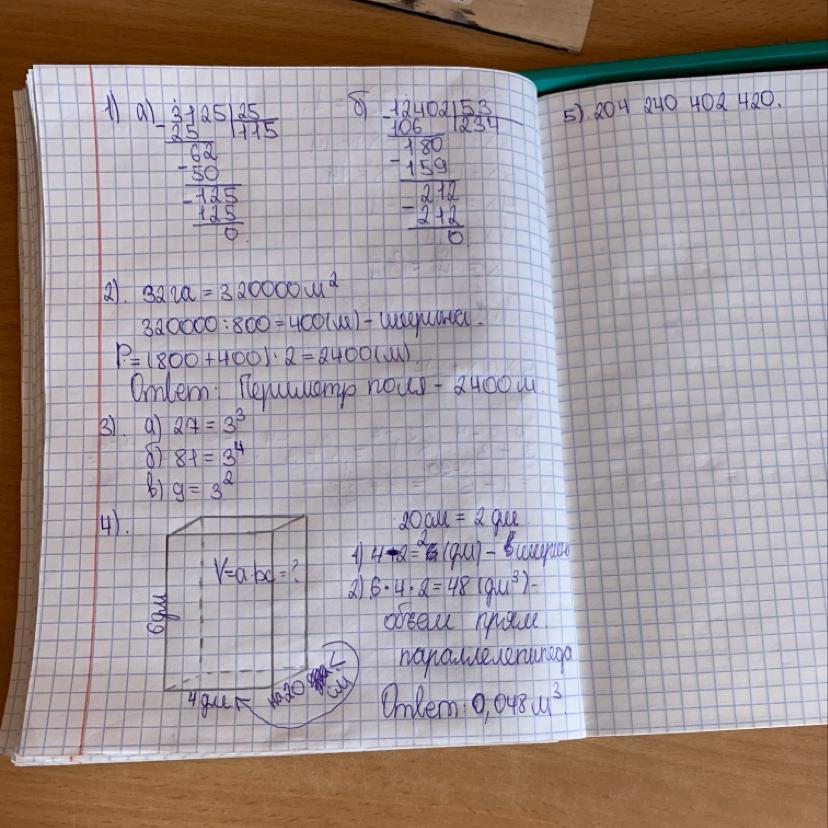 1) а) 3125 | 25
- 25 | 115
62
- 50
- 125
125
0
б) - 12402 | 53
106 | 234
180
- 159
212
- 212
0
2). 32га = 320000м²
320000 : 800 = 400(м) - ширина.
P = (800 + 400) · 2 = 2400(м).
Ответ: Периметр поля - 2400м
3). а) 27 = 3³
б) 81 = 3⁴
в) 9 = 3²
4).
V=a·bc=?
6дм
4дм
на 20
см
20см = 2 дм
1) 4-2=2 (дм) -
2) 6·4·2=48 (дм³) -
объем прям.
параллелепипеда
Ответ: 0,048м³
5). 204 240 402 420.